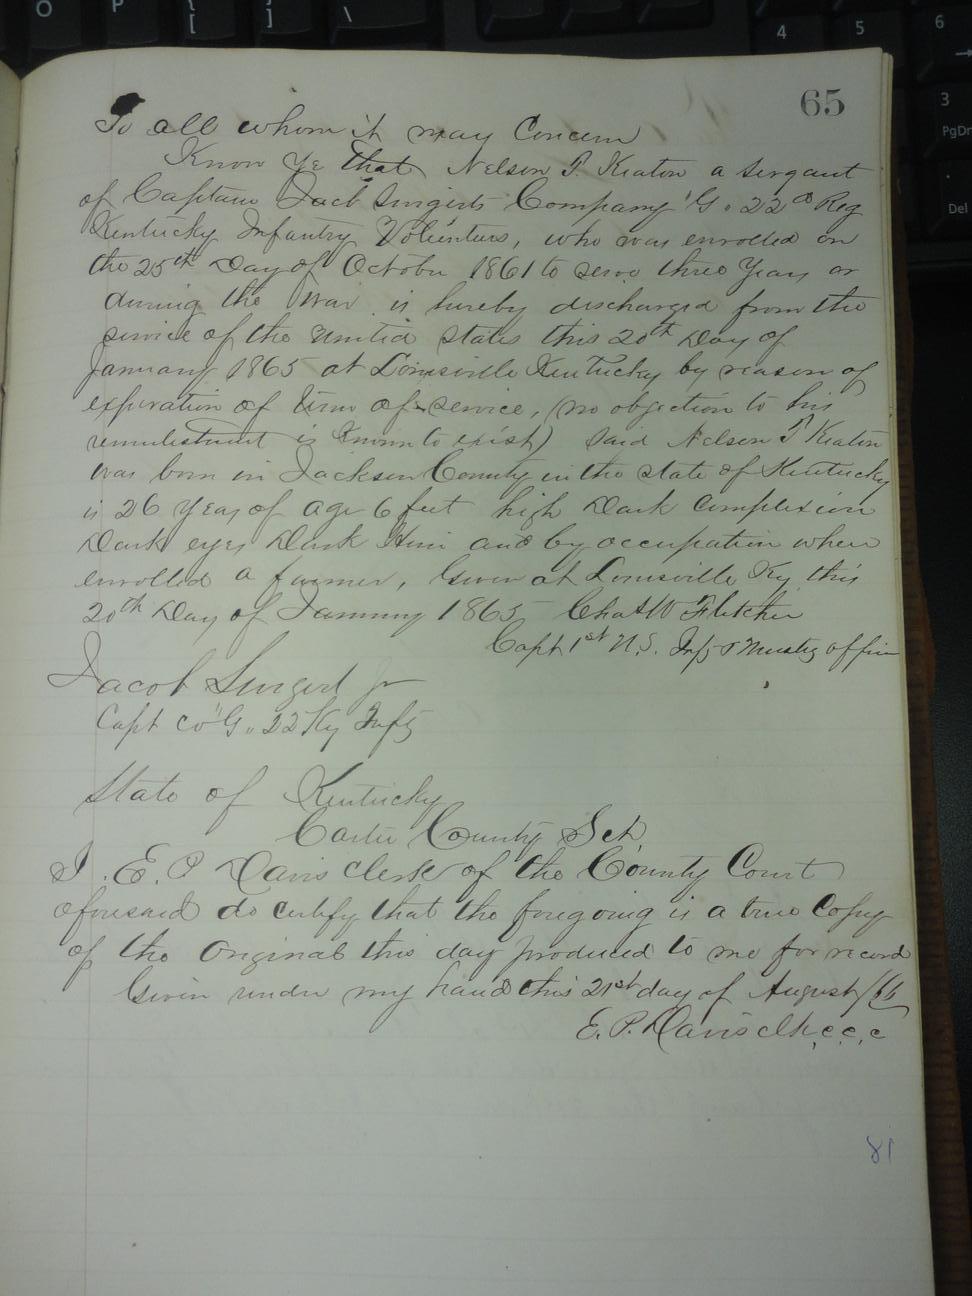 65
To all whom it may Concern
Know Ye that Nelson T. Keaton a Sergant
of Captain Jacob Swigerts Company "G" 22nd Reg
Kentucky Infantry Volunteers, who was enrolled on
the 25th Day of October 1861 to serve three Years or
during the War is hereby discharged from the
service of the United States this 20th Day of
January 1865 at Louisville Kentucky by reason of
expiration of term of service, (no objection to his
reenlistment is known to exist) Said Nelson T Keaton
was born in Jackson County in the state of Kentucky
is 26 Years of age 6 feet high Dark complexion
Dark eyes Dark Hair and by occupation when
enrolled a farmer, Given at Louisville Ky this
20th Day of January 1865 Chas W Fletcher
Capt 1st U.S. Infty & Mustg officer
Jacob Swigert Jr
Capt Co "G" 22 Ky Infty
State of Kentucky
Carter County Sct
I. E. P Davis clerk of the County Court
aforesaid do certify that the foregoing is a true Copy
of the Original this day produced to me for record
Given under my hand this 21st day of August /66
E. P. Davis clk, c. c. c
81